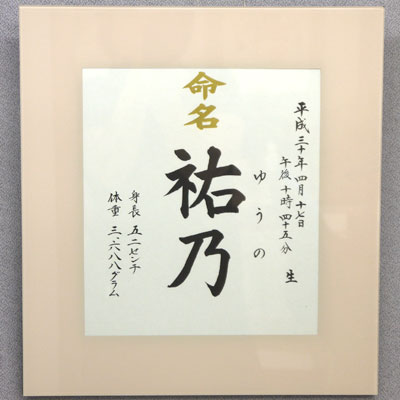 平成三十年四月十七日
午後十時四十五分 生
ゆうの
命名
祐乃
身長 五二センチ
体重 三・六八八グラム